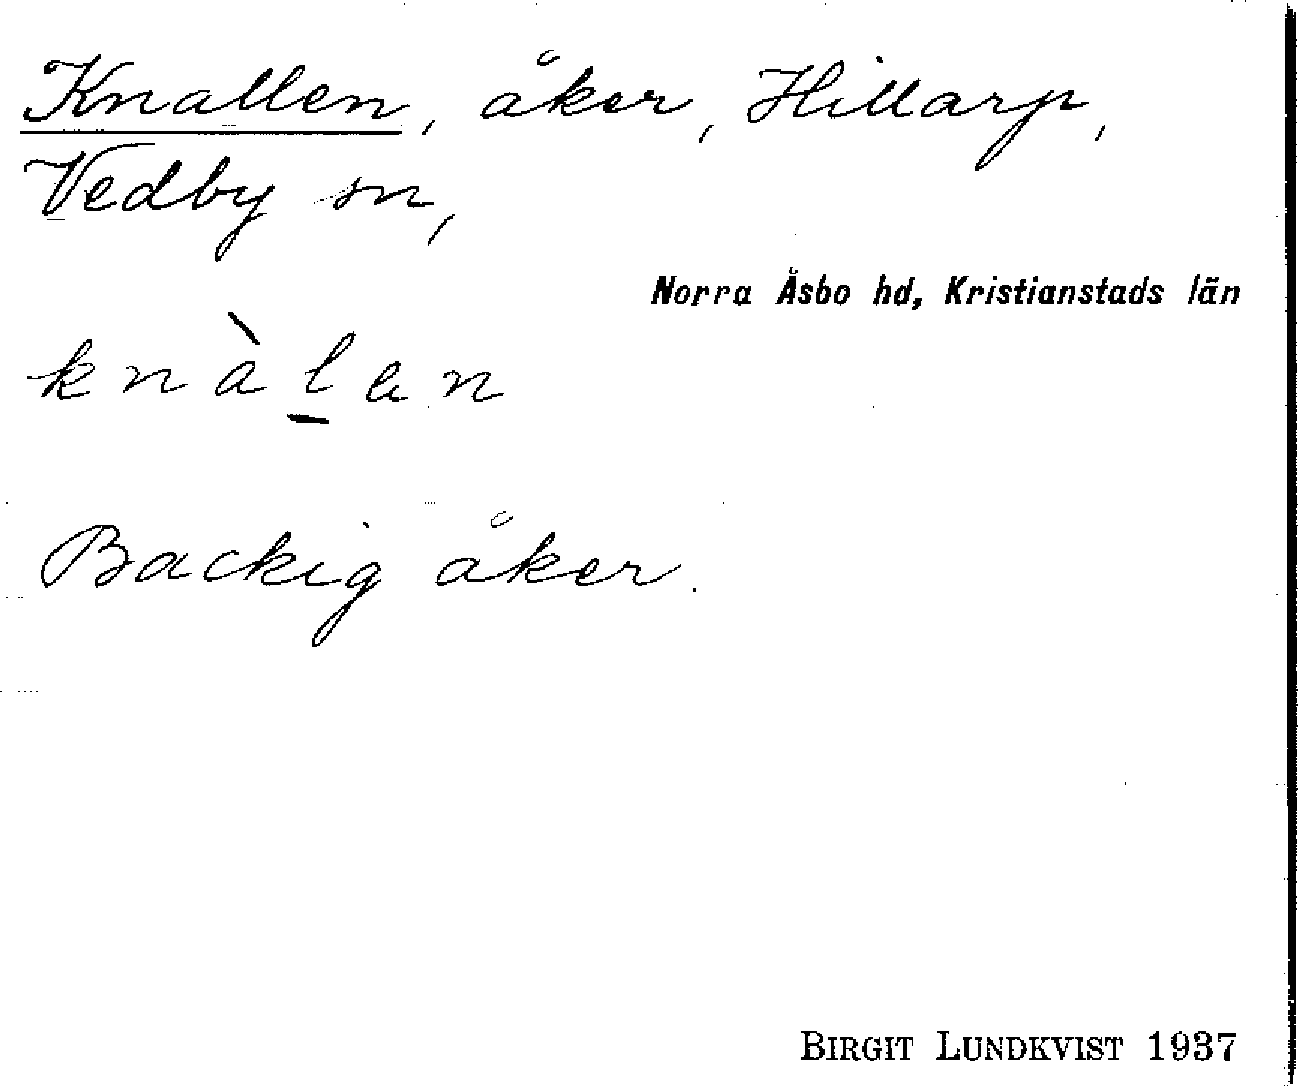 Knallen, åker, Hillarp,
Vedby sn,
Norra Åsbo hd, Kristianstads län
knàl̠ən
Backig åker.
BIRGIT LUNDKVIST 1937